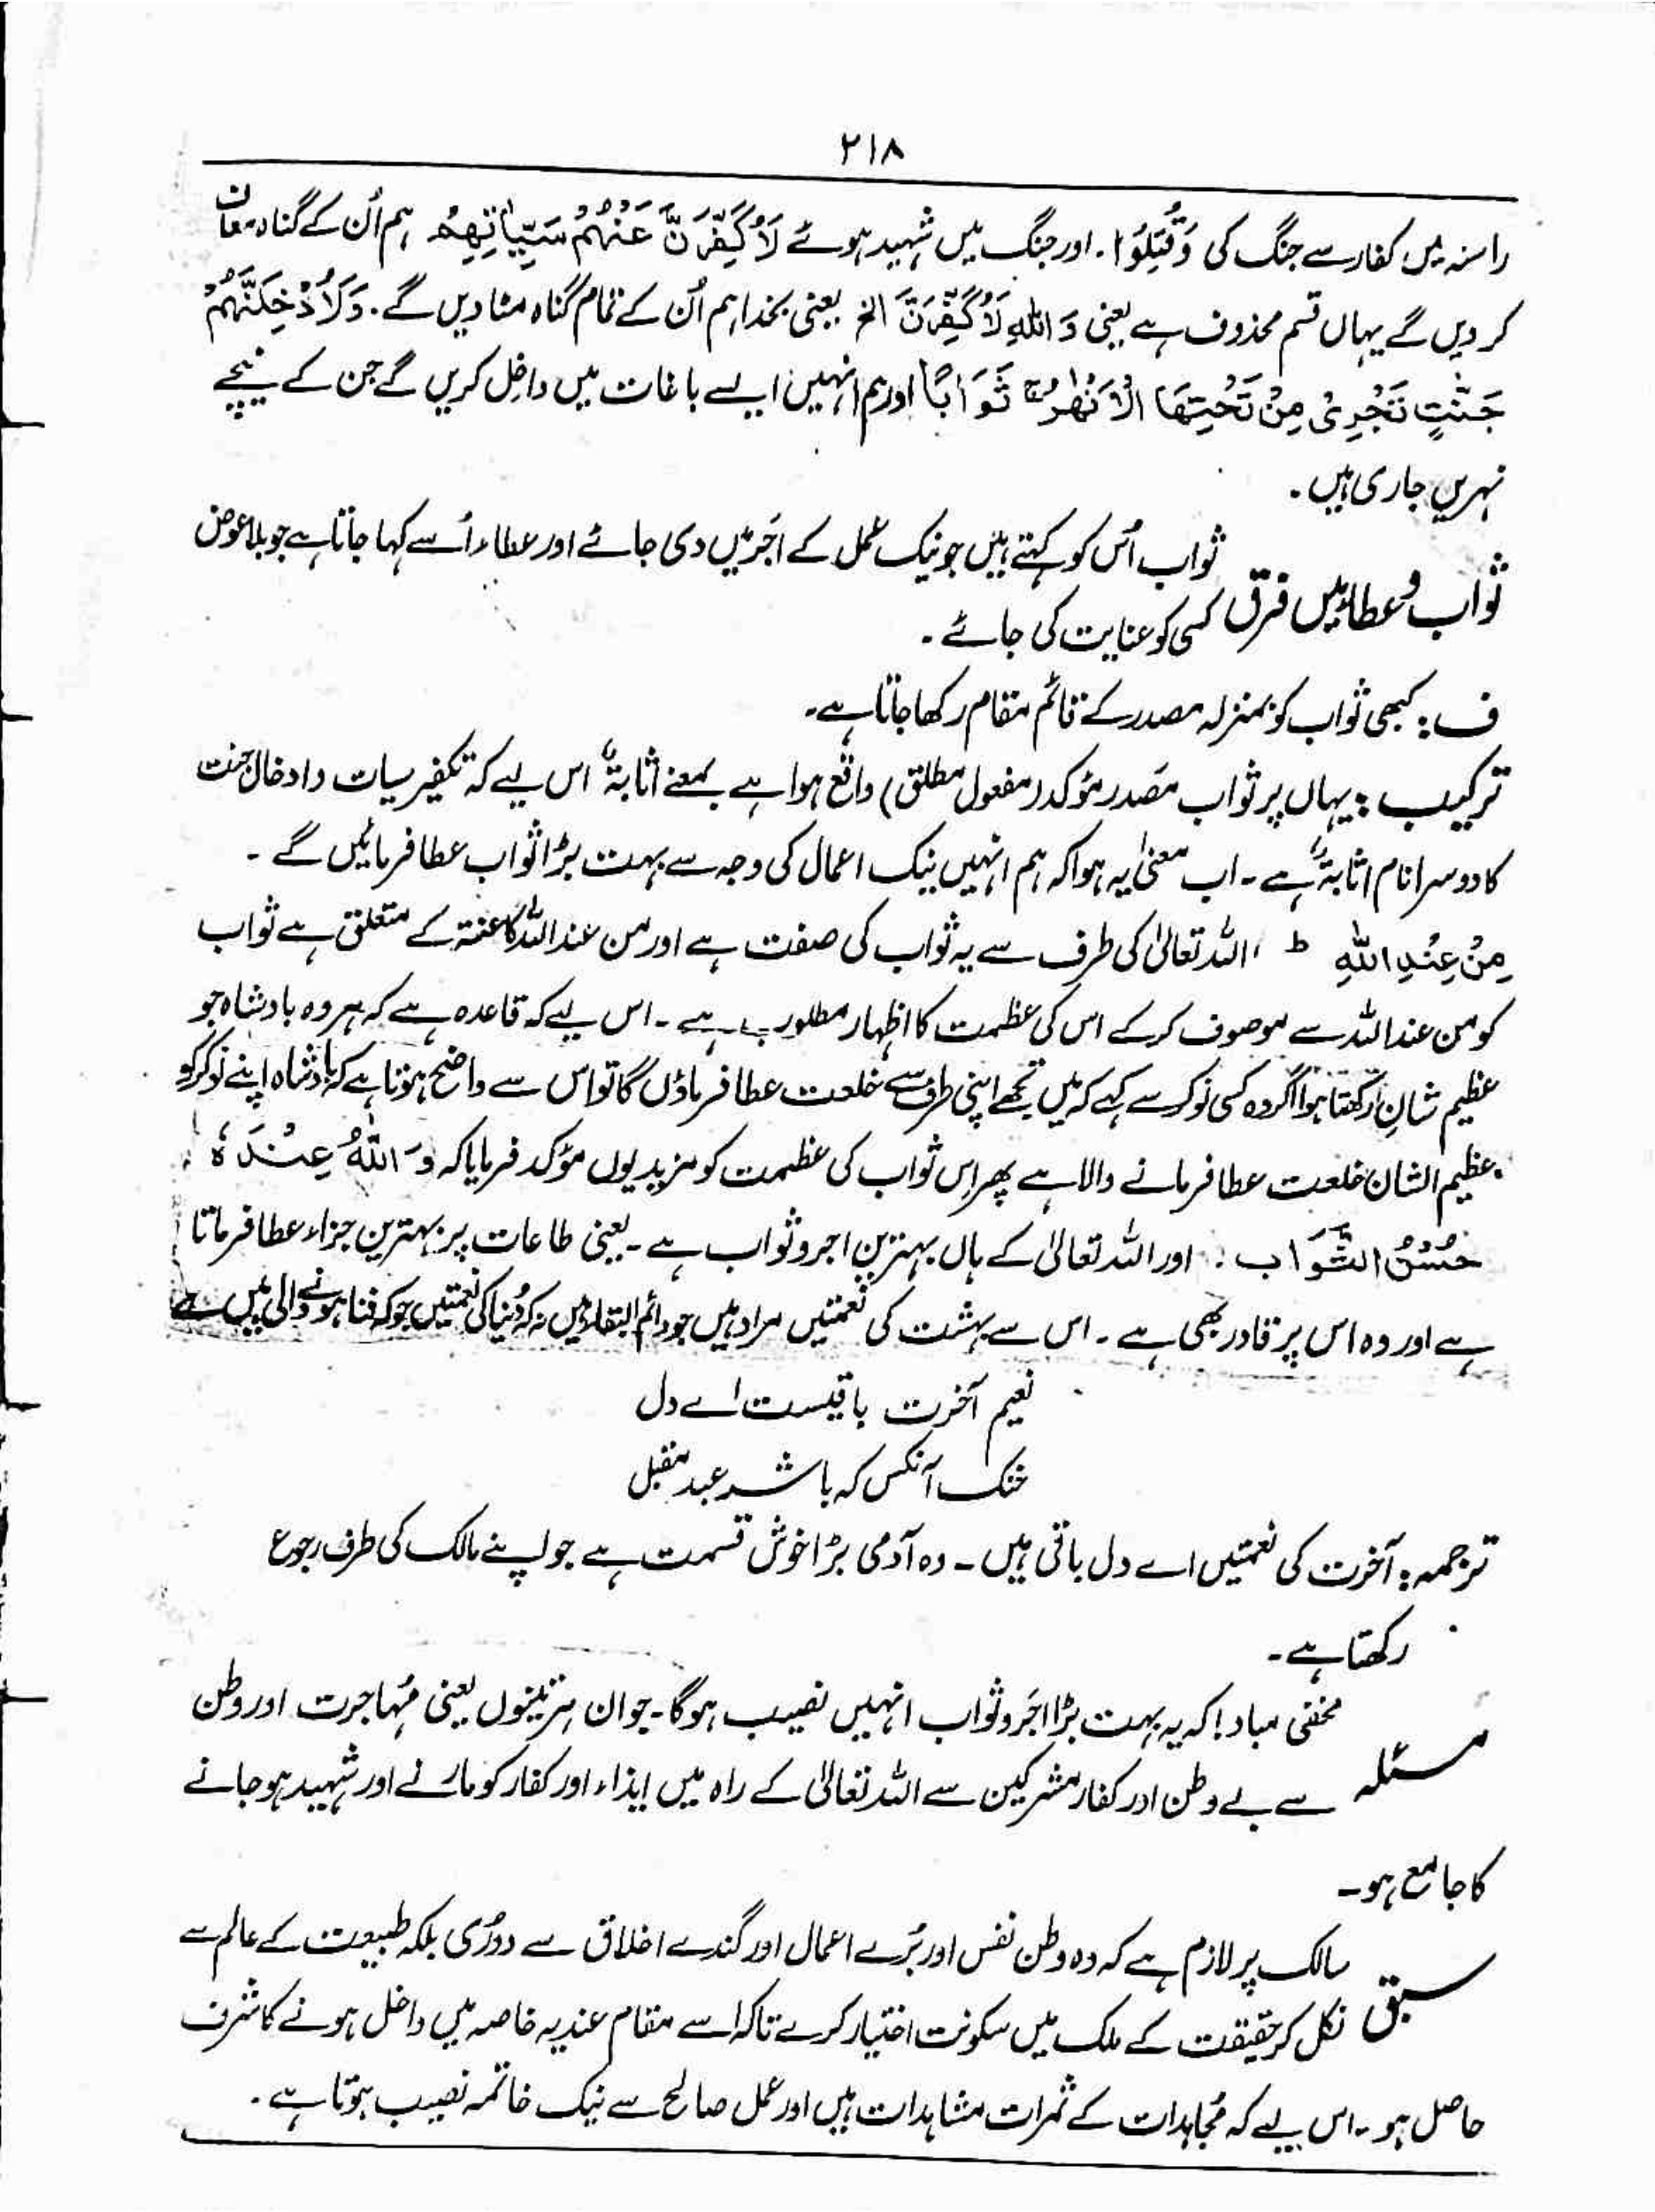 ۲۱۸
راستہ میں کفار سے جنگ کی وَقُتِلُوْا۔ اور جنگ میں شہید ہوئے لَاُكَفِّرَنَّ عَنْهُمْ سَيِّاٰتِهِمْ ہم اُن کے گناہ معاف
کر دیں گے یہاں قسم محذوف ہے یعنی وَاللّٰهِ لَاُكَفِّرَنَّ الخ یعنی بخدا ہم اُن کے تمام گناہ مٹا دیں گے۔ وَلَاُدْخِلَنَّهُمْ
جَنّٰتٍ تَجْرِىْ مِنْ تَحْتِهَا الْاَنْهٰرُ ۚ ثَوَابًا اور ہم انہیں ایسے باغات میں داخل کریں گے جن کے نیچے
نہریں جاری ہیں۔
ثواب و عطا میں فرق ثواب اُس کو کہتے ہیں جو نیک عمل کے اَجر میں دی جائے اور عطاء اُسے کہا جاتا ہے جو بلا عوض
کسی کو عنایت کی جائے۔
ف: کبھی ثواب کو بمنزلہ مصدر کے قائم مقام رکھا جاتا ہے۔
ترکیب: یہاں پر ثواب مَصدر مؤکد (مفعول مطلق) واقع ہوا ہے بمعنے اثابۃً اس لیے کہ تکفیر سیات و ادخال جنت
کا دوسرا نام اثابۃٌ ہے۔ اب معنیٰ یہ ہوا کہ ہم انہیں نیک اعمال کی وجہ سے بہت بڑا ثواب عطا فرمائیں گے۔
مِنْ عِنْدِ اللّٰهِ ط اللہ تعالیٰ کی طرف سے یہ ثواب کی صفت ہے اور من عند اللہ کا ئنۃ کے متعلق ہے ثواب
کو من عند اللہ سے موصوف کر کے اس کی عظمت کا اظہار مطلوب ہے۔ اس لیے کہ قاعدہ ہے کہ ہر وہ بادشاہ جو
عظیم شان رکھتا ہوا اگر وہ کسی نوکر سے کہے کہ میں تجھے اپنی طرف سے خلعت عطا فرماؤں گا تو اس سے واضح ہوتا ہے کہ بادشاہ اپنے نوکر کو
عظیم الشان خلعت عطا فرمانے والا ہے پھر اِس ثواب کی عظمت کو مزید یوں مؤکد فرمایا کہ وَاللّٰهُ عِنْدَهٗ
حُسْنُ الثَّوَاب۔ اور اللہ تعالیٰ کے ہاں بہترین اجر و ثواب ہے۔ یعنی طاعات پر بہترین جزاء عطا فرماتا
ہے اور وہ اس پر قادر بھی ہے۔ اس سے بہشت کی نعمتیں مراد ہیں جو دائم البقاء ہیں نہ کہ دُنیا کی نعمتیں جو کہ فنا ہونے والی ہیں ے
نعیم آخرت باقیست اے دل
خنک آنکس کہ باشد عبد مقبل
ترجمہ: آخرت کی نعمتیں اے دل باقی ہیں۔ وہ آدمی بڑا خوش قسمت ہے جو اپنے مالک کی طرف رجوع
رکھتا ہے۔
مسئلہ مخفی مباد! کہ یہ بہت بڑا اجَر و ثواب انہیں نصیب ہوگا۔ جو ان ہر تینوں یعنی مُہاجرت اور وطن
سے بے وطن اور کفار مشرکین سے اللہ تعالیٰ کے راہ میں ایذاء اور کفار کو مارنے اور شہید ہو جانے
کا جامع ہو۔
سبق سالک پر لازم ہے کہ وہ وطن نفس اور بُرے اعمال اور گندے اخلاق سے دورُی بلکہ طبیعت کے عالم سے
نکل کر حقیقت کے ملک میں سکونت اختیار کرے تاکہ اسے مقام عندیہ خاصہ میں داخل ہونے کا شرف
حاصل ہو۔ اس لیے کہ مُجاہدات کے ثمرات مشاہدات ہیں اور عمل صالح سے نیک خاتمہ نصیب ہوتا ہے۔